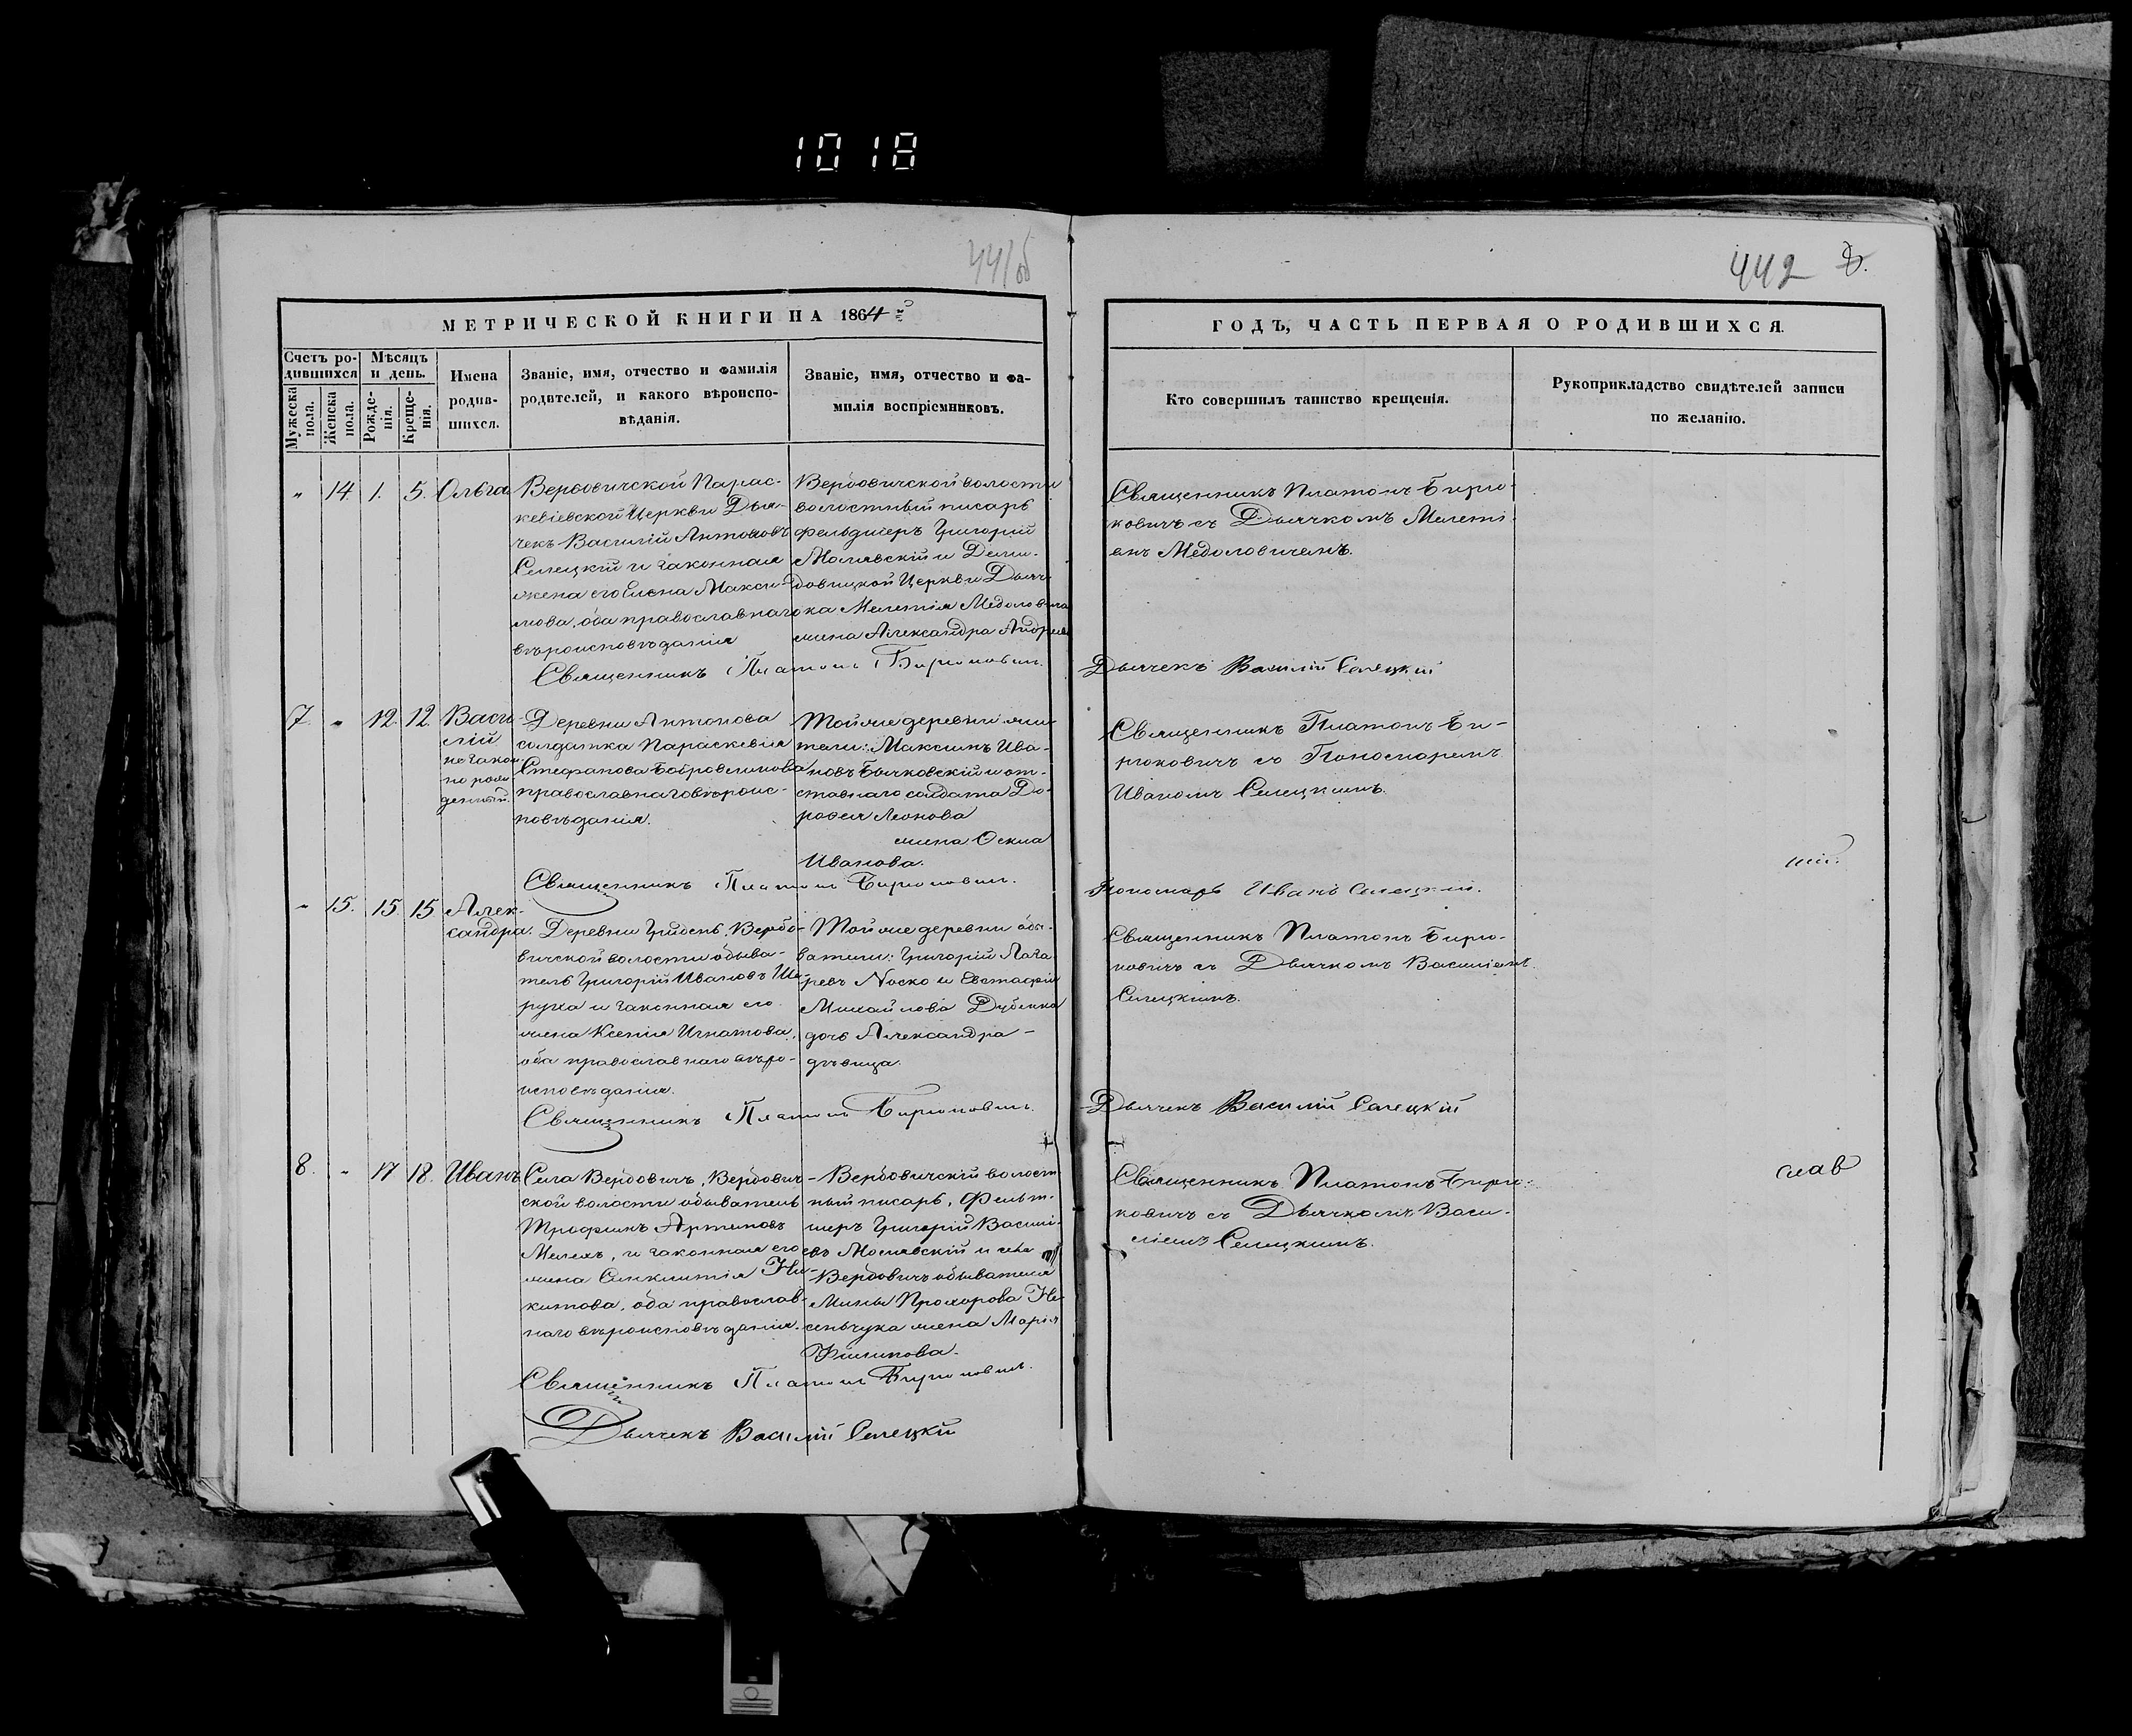 1018
441об
442
МЕТРИЧЕСКОЙ КНИГИ НА 1864й
Счетъ родившихся
Мѣсяцъ и день.
Мужеска пола.
Женска пола.
Рожденія.
Крещенія.
Имена родившихся.
Званіе, имя, отчество и фамилія
родителей, и какого вѣроиспо-
вѣданія.
Званіе, имя, отчество и фа-
милія воспріемниковъ.
ГОДЪ, ЧАСТЬ ПЕРВАЯ О РОДИВШИХСЯ.
Кто совершилъ таинство крещенія.
Рукоприкладство свидѣтелей записи
по желанію.
" 14. 1. 5. Ольга
Вербовичской Парас-
кевіевской Церкви Дья-
чекъ Василій Антоновъ
Селецкій и законная
жена его Елена Макси-
мова, оба православнаго
вѣроисповѣданія
Вербовичской волости
волостный писарь
фельдшеръ Григорій
и
Церкви Дьяч-
ка Мелетія
жена Александра Андреева
Священникъ Платонъ Бирю-
ковичъ съ Дьячкомъ Мелеті-
емъ
Священникъ Платонъ Бирюковичъ.
Дьячекъ Василій Селецкій
7. " 12. 12. Васи-
лій
незакон-
но рож-
денный.
Деревни Антонова
солдатка Параскевія
Стефанова
православнаго вѣроис-
повѣданія.
Той же деревни жи-
тели: Максимъ Ива-
новъ Бычковскій и от-
ставнаго солдата До-
рофея Леонова
жена
Иванова.
Священникъ Платонъ Би-
рюковичъ съ Пономаремъ
Иваномъ Селецкимъ.
Священникъ Платонъ Бирюковичъ.
Пономарь Иванъ Селецкій.
" 15. 15 15 Алек-
сандра.
Деревни Грибень, Вербо-
вичской волости обыва-
тель Григорій Ивановъ Ше-
руха и законная его
жена Ксенія Игнатова,
оба православнаго вѣро-
исповѣданія.
Той же деревни обы-
ватели: Григорій Лаза-
ревъ Носко и Евстафія
Михайлова Дубенка
дочь Александра -
дѣвица.
Священникъ Платонъ Бирю-
ковичъ съ Дьячкомъ Василіемъ
Селецкимъ.
Священникъ Платонъ Бирюковичъ.
Дьячекъ Василій Селецкій
8. " 17 18. Иванъ
Села Вербовичъ, Вербович-
ской волости обыватель
Трофимъ Артемовъ
Мелехъ, и законная его
жена Синклитія Ни-
китова, оба православ-
наго вѣроисповѣданія.
Вербовичскій волост-
ный писарь, Фельт-
шеръ Григорій Василі-
евъ и села
Вербовичъ обывателя
Мины Прохорова
жена Марія
Филипова.
Священникъ Платонъ Бирю-
ковичъ съ Дьячкомъ Васи-
ліемъ Селецкимъ.
слав
Священникъ Платонъ Бирюковичъ.
Дьячекъ Василій Селецкій